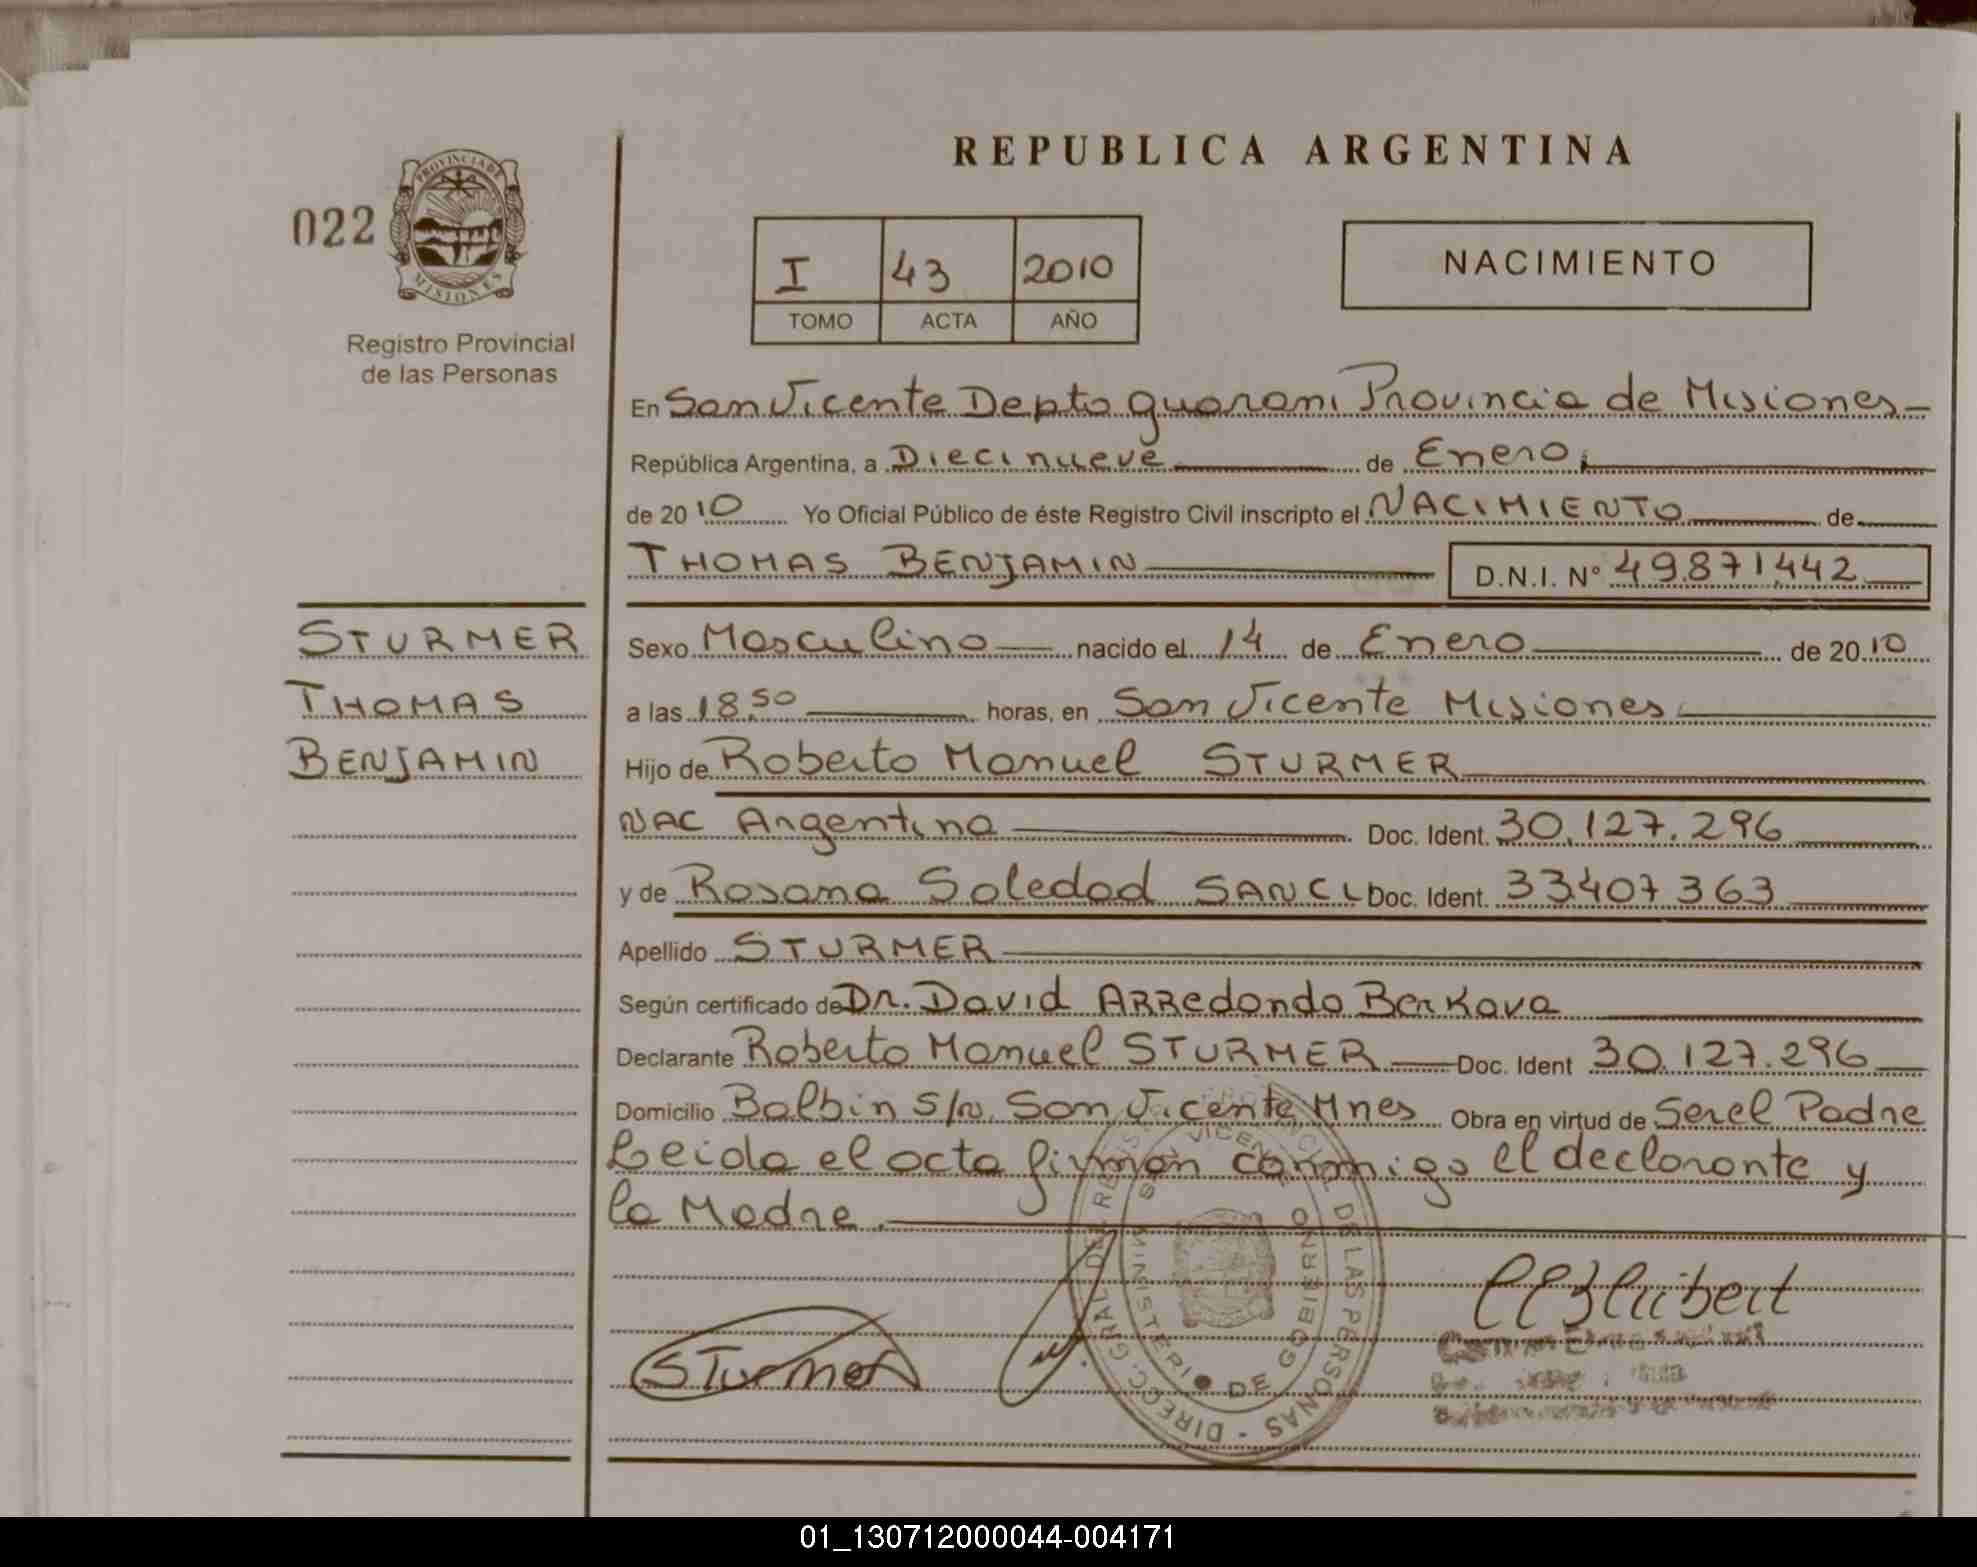 REPUBLICA ARGENTINA
022
PROVINCIA DE
MISIONES
Registro Provincial
de las Personas
I 43 2010
TOMO ACTA AÑO
NACIMIENTO
En San Vicente Depto guarani Provincia de Misiones
República Argentina, a Diecinueve de Enero
de 2010 Yo Oficial Público de éste Registro Civil inscripto el NACIMIENTO de
THOMAS BENJAMIN D.N.I. Nº 49871442
STURMER
THOMAS
BENJAMIN
Sexo Masculino nacido el 14 de Enero de 2010
a las 18,50 horas, en San Vicente Misiones
Hijo de Roberto Manuel STURMER
NAC Argentina Doc. Ident. 30.127.296
y de Rosana Soledad Doc. Ident. 33407363
Apellido STURMER
Según certificado de Dr. David ARREdondo Berkova
Declarante Roberto Manuel STURMER Doc. Ident 30.127.296
Domicilio Balbin S/N. San Vicente Mnes Obra en virtud de Serel Padre
Leida el acta firman conmigo el declarante y
la Madre.
STurmer
DIRECC. GRAL. DEL REGISTRO PROVINCIAL DE LAS PERSONAS
SAN VICENTE
MINISTERIO DE GOBIERNO
01_130712000044-004171